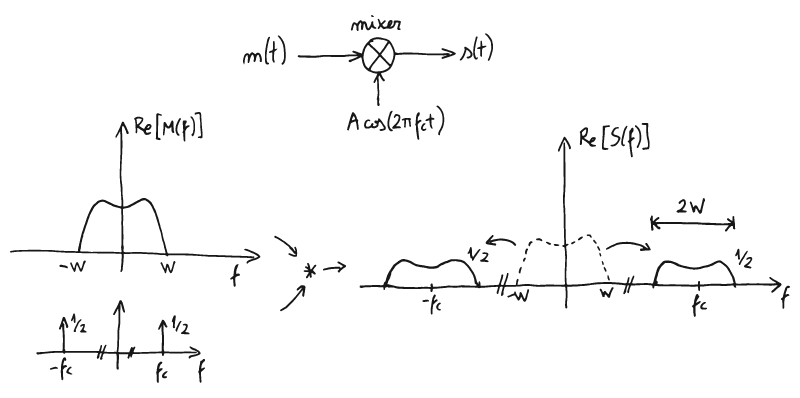 mixer
m(t)
s(t)
A cos(2πfct)
Re[M(f)]
-W
W
f
1/2
1/2
-fc
fc
f
*
Re[S(f)]
2W
1/2
1/2
-fc
-W
W
fc
f